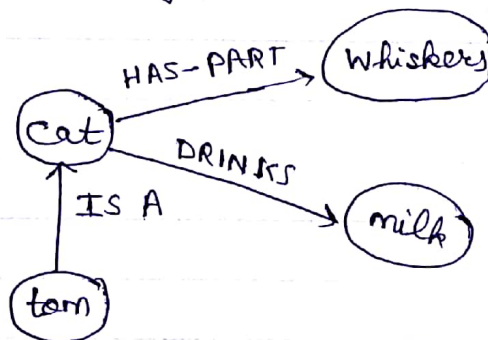 HAS-PART
Whiskers
cat
DRINKS
IS A
milk
tom